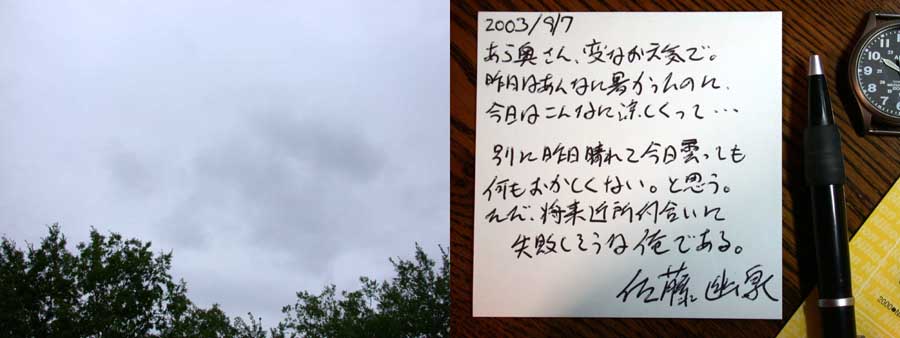 2003/9/7
あら奥さん、変なお天気で。
昨日はあんなに暑かったのに、
今日はこんなに涼しくって・・・
別に昨日晴れて今日曇っても
何もおかしくない。と思う。
ただ、将来近所付合いに
失敗しそうな俺である。
佐藤